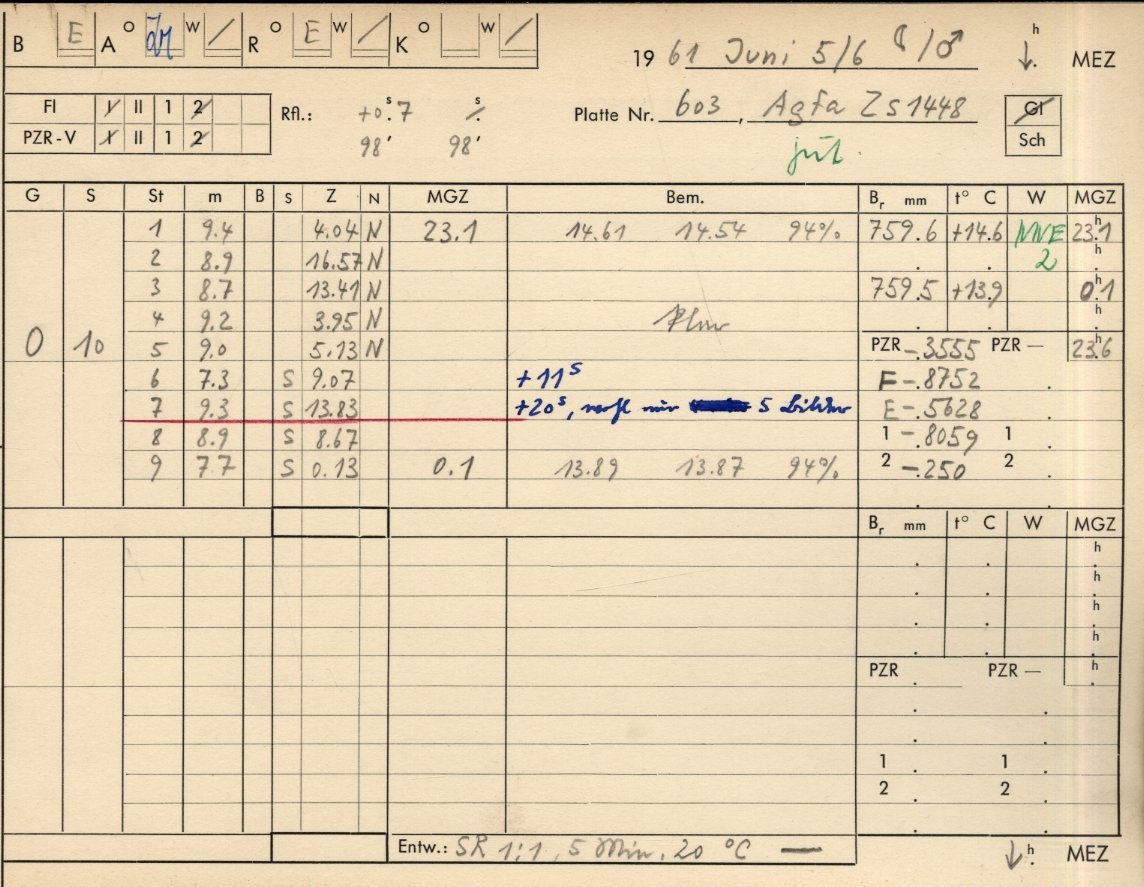 B E A O W / R O E W / K O W / 19 61 Juni 5/6 ☾/♂ h MEZ
Fl I II 1 2 Rfl.: +0ˢ.7 s Platte Nr. 603, Agfa ZS1448 Gl
PZR-V I II 1 2 98' 98' gut. Sch
G S St m B S Z N MGZ Bem. Bᵣ mm t° C W MGZ
1 9.4 4.04 N 23.1 14.61 14.54 94% 759.6 +14.6 NNE 23ʰ.1
2 8.9 16.57 N 2 h
3 8.7 13.41 N 759.5 +13.9 0ʰ.1
4 9.2 3.95 N h
0 10 5 9.0 5.13 N PZR -.3555 PZR — 23ʰ.6
6 7.3 S 9.07 +11ˢ F -.8752
7 9.3 S 13.83 +20ˢ, wohl nur 5 Bilder E -.5628
8 8.9 S 8.67 1 -.8059 1
9 7.7 S 0.13 0.1 13.89 13.87 94% 2 -.250 2
Bᵣ mm t° C W MGZ
h
h
h
h
PZR PZR — h
1 1
2 2
Entw.: SR 1:1, 5 Min, 20 °C — h MEZ